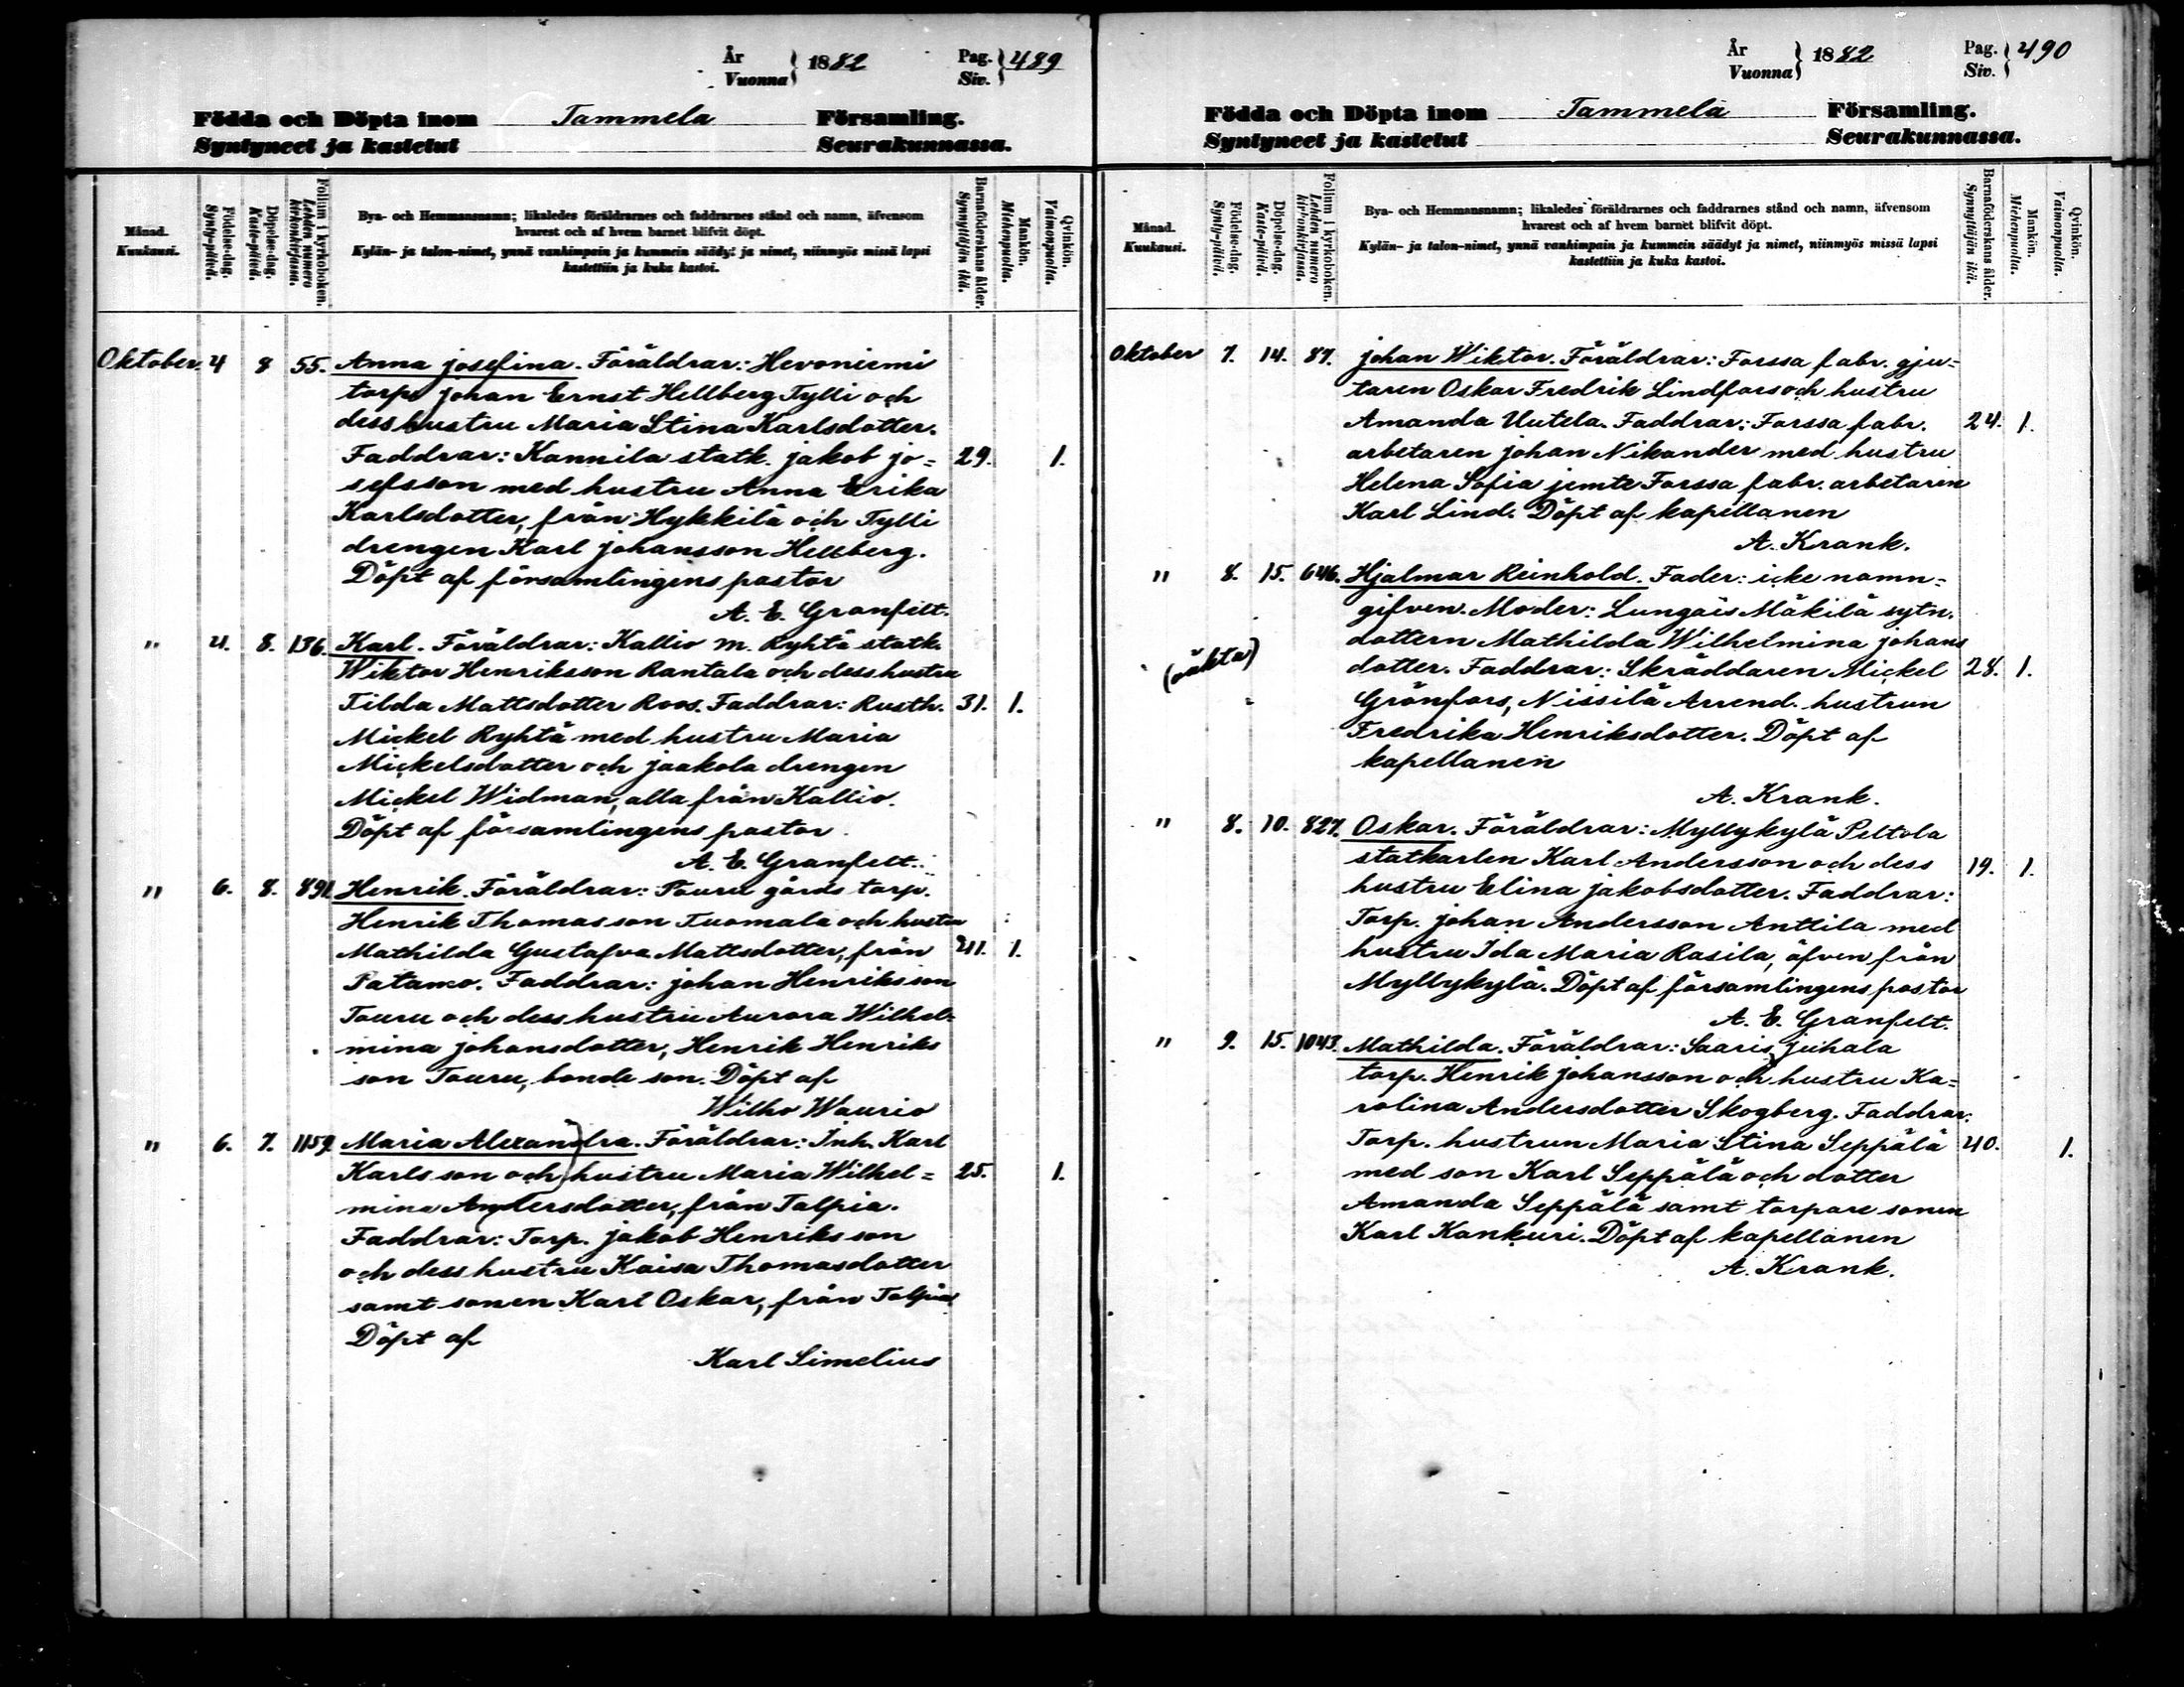 År
Vuonna } 1882 Pag.
Siv. } 489
Födda och Döpta inom Tammela Församling.
Syntyneet ja kastetut Seurakunnassa.
Månad.
Kuukausi.
Födelse-dag.
Synty-päivä.
Döpelse-dag.
Kaste-päivä.
Folium i kyrkoboken.
Lehden numero
kirkonkirjassa.
Bya- och Hemmansnamn; likaledes föräldrarnes och faddrarnes stånd och namn, äfvensom
hvarest och af hvem barnet blifvit döpt.
Kylän- ja talon-nimet, ynnä vanhimpain ja kummein säädyt ja nimet, niinmyös missä lapsi
kastettiin ja kuka kastoi.
Barnaföderskans ålder.
Synnyttäjän ikä.
Mankön.
Miehenpuolta.
Qvinkön.
Vaimonpuolta.
Oktober. 4 8 55. Anna josefina. Föräldrar: Hevoniemi
torp. johan Ernst Hellberg Tylli och
dess hustru Maria Stina Karlsdotter.
Faddrar: Kannila statk. jakob jo= 29. 1.
sefsson med hustru Anna Erika
Karlsdotter, från Hykkilä och Tylli
drengen Karl johansson Hellberg.
Döpt af församlingens pastor
A. E. Granfelt.
" 4. 8. 136. Karl. Föräldrar: Kallio m. Ryhtä statk.
Wiktor Henriksson Rantala och dess hustru
Tilda Mattsdotter Roos. Faddrar: Rusth. 31. 1.
Mickel Ryhtä med hustru Maria
Mickelsdotter och jaakola drengen
Mickel Widman, alla från Kallio.
Döpt af församlingens pastor.
A. E. Granfelt.
" 6. 8. 891. Henrik. Föräldrar: Touru gårds torp.
Henrik Thomasson Tuomala och hustru
Mathilda Gustafva Mattsdotter, från 41. 1.
Patamo. Faddrar: johan Henriksson
Touru och dess hustru Aurora Wilhel=
mina johansdotter, Henrik Henriks
son Touru, bonde son. Döpt af
Wilho Waurio
" 6. 7. 1159. Maria Alexandra. Föräldrar: Inh. Karl
Karlsson och hustru Maria Wilhel= 25. 1.
mina Andersdotter, från Talpia.
Faddrar: Torp. jakob Henriksson
och dess hustru Kaisa Thomasdotter
samt sonen Karl Oskar, från Talpia
Döpt af
Karl Simelius
År
Vuonna } 1882 Pag.
Siv. } 490
Födda och Döpta inom Tammela Församling.
Syntyneet ja kastetut Seurakunnassa.
Månad.
Kuukausi.
Födelse-dag.
Synty-päivä.
Döpelse-dag.
Kaste-päivä.
Folium i kyrkoboken.
Lehden numero
kirkonkirjassa.
Bya- och Hemmansnamn; likaledes föräldrarnes och faddrarnes stånd och namn, äfvensom
hvarest och af hvem barnet blifvit döpt.
Kylän- ja talon-nimet, ynnä vanhimpain ja kummein säädyt ja nimet, niinmyös missä lapsi
kastettiin ja kuka kastoi.
Barnaföderskans ålder.
Synnyttäjän ikä.
Mankön.
Miehenpuolta.
Qvinkön.
Vaimonpuolta.
Oktober 7. 14. 87. johan Wiktor. Föräldrar: Forssa fabr. gju=
taren Oskar Fredrik Lindfors och hustru
Amanda Uutela. Faddrar: Forssa fabr. 24. 1.
arbetaren johan Nikander med hustru
Helena Sofia jemte Forssa fabr. arbetaren
Karl Lind. Döpt af kapellanen
A. Krank.
" 8. 15. 646. Hjalmar Reinhold. Fader: icke namn=
gifven. Moder: Lungois Mäkilä sytn.
dottern Mathilda Wilhelmina johans
(oäkta) dotter. Faddrar: Skräddaren Mickel 28. 1.
Grönfors, Nissilä Arrend. hustrun
Fredrika Henriksdotter. Döpt af
kapellanen
A. Krank.
" 8. 10. 827. Oskar. Föräldrar: Myllykylä Peltola
statkarlen Karl Andersson och dess 19. 1.
hustru Elina jakobsdotter. Faddrar:
Torp. johan Andersson Anttila med
hustru Ida Maria Rasila, äfven från
Myllykylä. Döpt af församlingens pastor
A. E. Granfelt.
" 9. 15. 1043. Mathilda. Föräldrar: Saaris juhala
torp. Henrik johansson och hustru Ka=
rolina Andersdotter Skogberg. Faddrar:
Torp. hustrun Maria Stina Seppälä 40. 1.
med son Karl Seppälä och dotter
Amanda Seppälä samt torpare sonen
Karl Kankuri. Döpt af kapellanen
A. Krank.